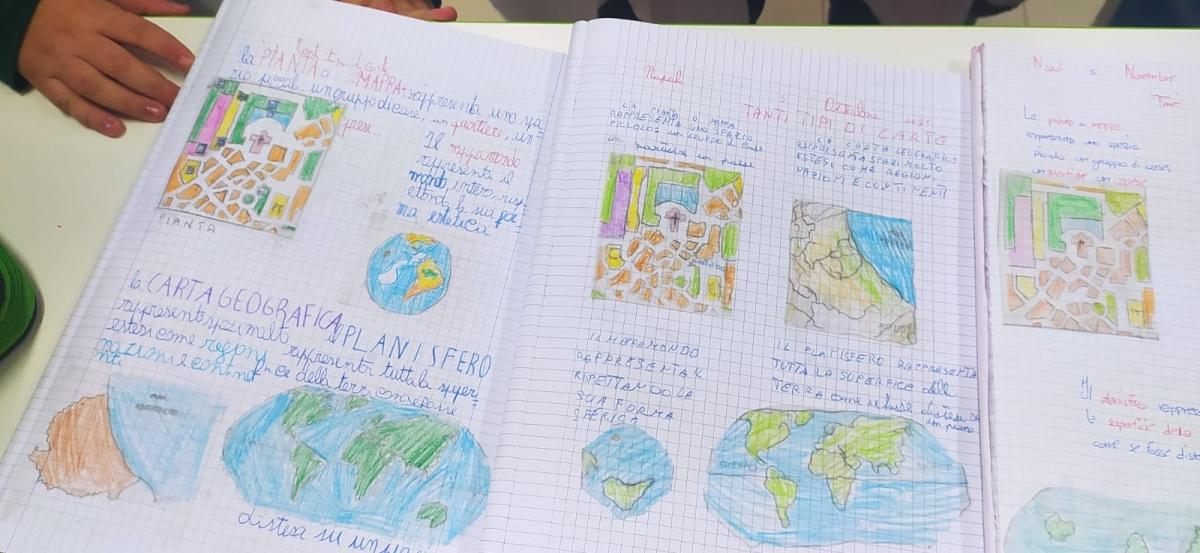 la PIANTA o MAPPA rappresenta uno spa-
zio piccolo, un gruppo di case, un quartiere, un
paese
PIANTA
Il mappamondo
rappresenta il
mondo intero, risp-
ettando la sua for-
ma
la CARTA GEOGRAFICA
rappresenta spazi molto
estesi come regioni
nazioni e contine
nti
il PLANISFERO
rappresenta tutta la super-
fice della terra come se fosse
distesa su un
Napoli 5
TANTI TIPI DI CARTE
LA PIANTA O MAPPA
RAPPRESENTA UNO SPAZIO
PICCOLO, UN GRUPPO DI CASE
un paese
LA CARTA GEOGRAFICA
RAPPRESENTA SPAZI MOLTO
ESTESI COME REGIONI
NAZIONI E CONTINENTI
IL MAPPAMONDO
RAPPRESENTA IL
RIPETTANDO LA
SUA FORMA
SFERICA
IL PLANISFERO RAPPRESENTA
TUTTA LA SUPERFICE della
TERRA come se fosse distesa su
un piano
5 Novembre
Le piante o mappe
uno spazio
piccolo: un gruppo di case,
un quartiere un paese
Il
la superficie della
come se fosse dist